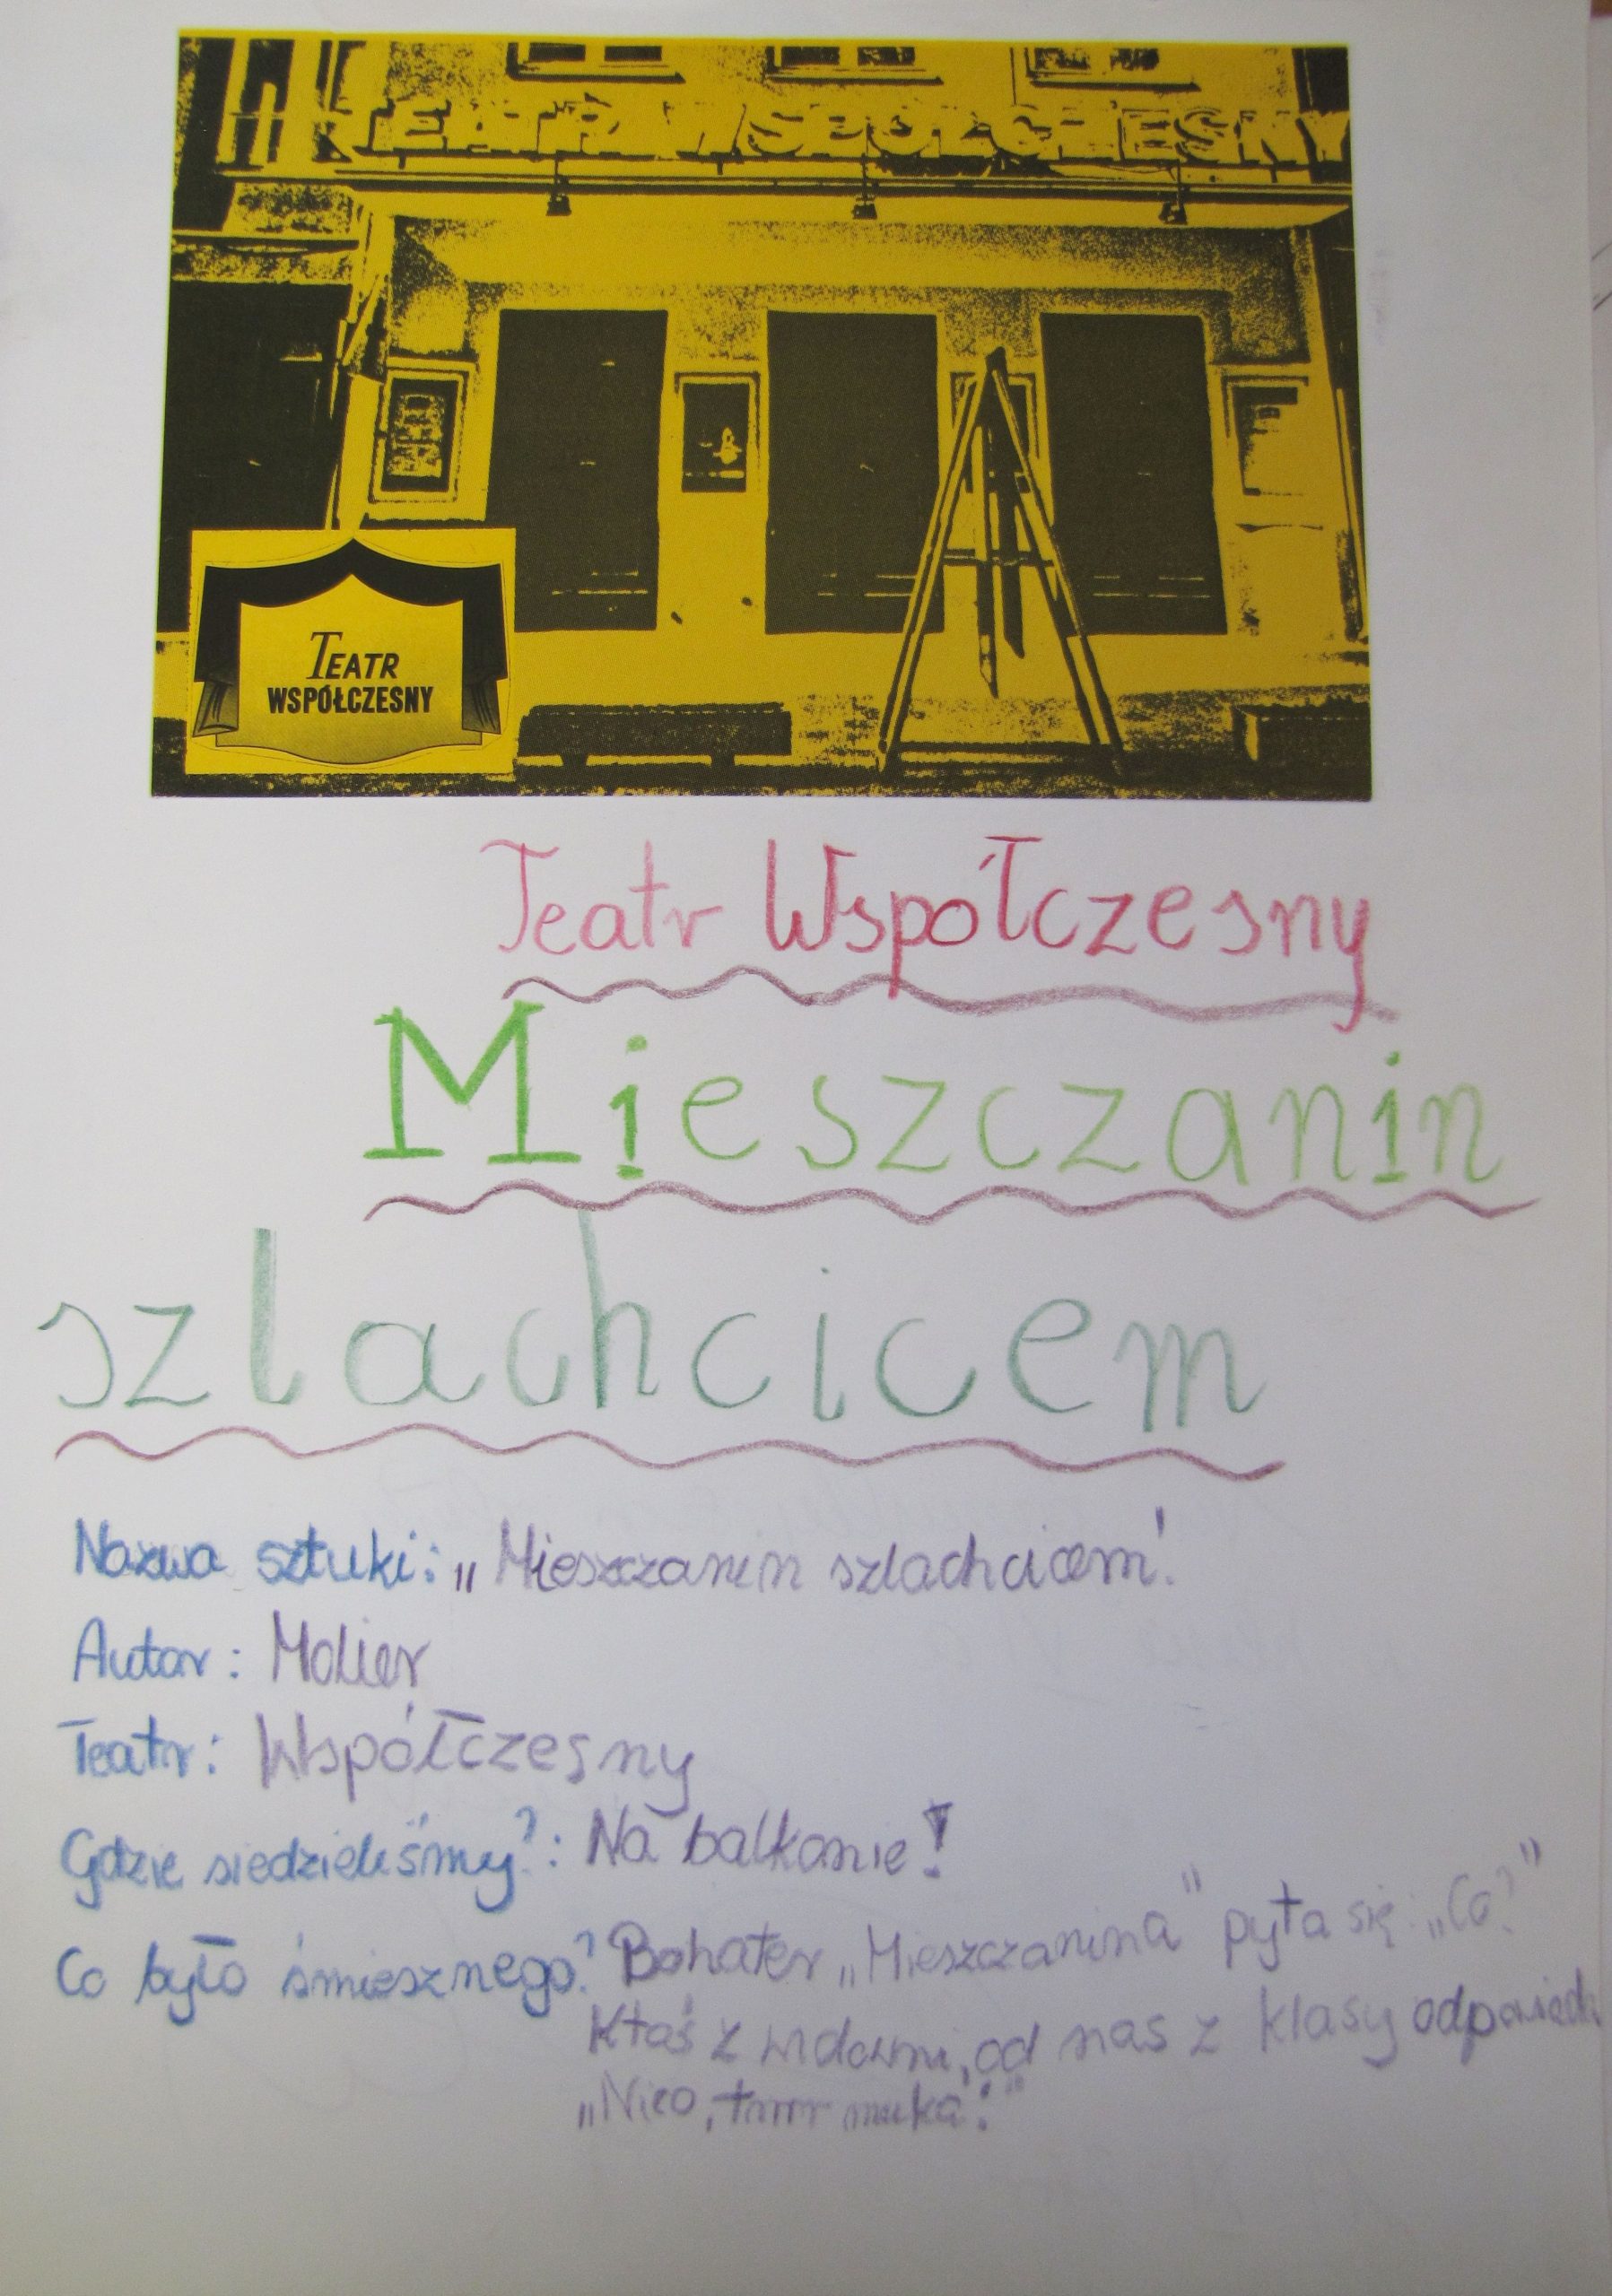 TEATR WSPÓŁCZESNY
TEATR
WSPÓŁCZESNY
Teatr Współczesny
Mieszczanin
szlachcicem
Nazwa sztuki: „Mieszczanin szlachcicem"
Autor: Molier
Teatr: Współczesny
Gdzie siedzieliśmy?: Na balkonie!
Co było śmiesznego? Bohater „Mieszczanina" pyta się: „Co?"
Ktoś z widowni, od nas z klasy
„Nico,